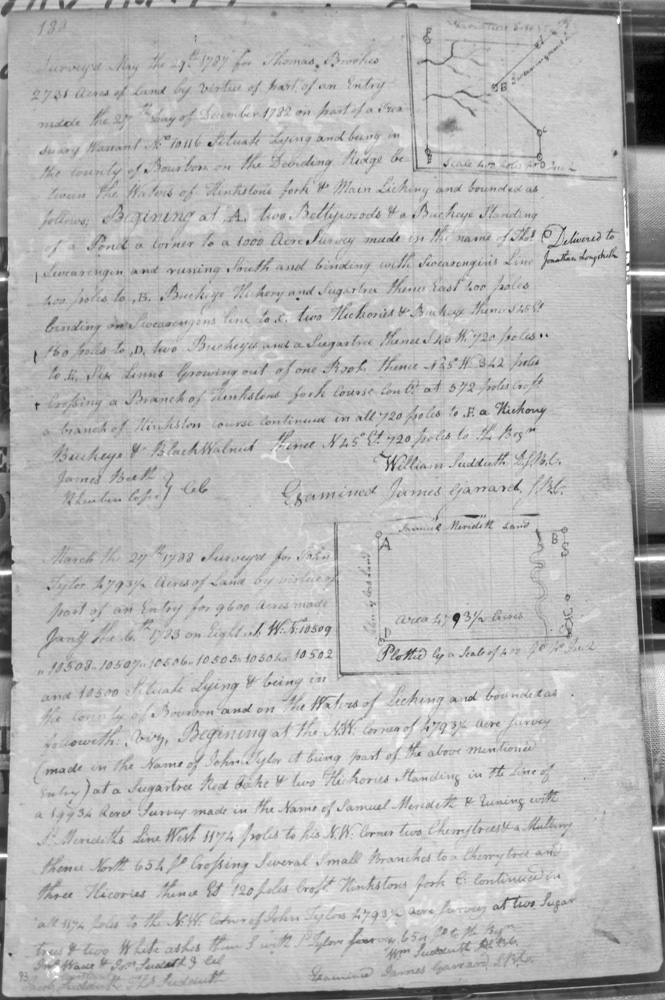 Surveyed May the 29th 1787 for Thomas Brookes
2731 Acres of Land by Virtue of part of an Entry
made the 27th Day of December 1782 on part of a Trea
suary Warrant No 10116 Situate Lying and being in
the County of Bourbon on the Deviding Ridge be
tween the Waters of Hinkstons fork & Main Licking and bounded as
follows, Begining at A. two Bettywoods & a Buckeye Standing
of a Pond a Corner to a 1000 Acre Survey made in the name of Thos
Swearengen and runing South and binding with Swearengins Line
400 poles to B. Buckeye Hickory and Sugartree thence East 400 poles
binding on Swearengens line to C. two Hickories & Buckeye thence S 45 Et
160 poles to D, two Buckeyes and a Sugartree thence S 45 W. 720 poles
to E, Six Linns Growing out of one Root, thence N 45 W 342 poles
Crossing a Branch of Hinkstons fork Course Contd at 572 poles Crost
a branch of Hinkston Course continued in all 720 poles to F. a Hickory
Buckeye & Black Walnut thence N 45 Et 720 poles to the Begn
James Beath
Cbb
William Sudduth D.S.B.C.
Examined James Garrard, S.B.C.
Delivered to
Jonathan
Scale 400 Poles pr Inch
B
D
March the 27th 1788 Surveyed for John
Tylor 4793½ Acres of Land by virtue of
part of an Entry for 9600 Acres made
Jany the 6th 1783 on Eight W. No 10509
10508 10507 10506 10505 10504 10502
and 10500 Situate Lying & being in
the County of Bourbon and on the Waters of Licking and bounded as
followeth, Begining at the N.W. Corner of 4793½ Acre Survey
(made in the Name of John Tylor it being part of the above mentioned
Entry) at a Sugartree Red Oake & two Hickories Standing in the Line of
a Acre Survey made in the Name of Samuel Merideth & runing with
Sl Merideths Line West 1174 poles to his N.W. Corner two Cherrytrees & a Mulberry
thence North 654 po Crossing Several Small Branches to a Cherrytree and
three Hicories thence Et 120 poles Crost Hinkstons fork C. Continued in
all 1174 poles to the N.W. Corner of John Tylors 4793½ acre Survey at two Sugar
trees & two White ashes thence S with Sd Tylors Survey 654 po to the Begn
Wm Sudduth D.S.B.C.
Examined James Garrard S.B.C.
Samuel Merideth Land
A
B
S
C
D
John Tylors Land
Area 4793½ Acres
Plotted by a Scale of 400 po pr Inch
93